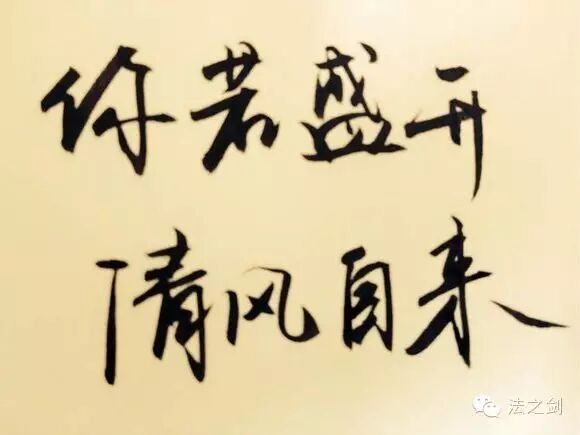 你若盛开
清风自来
法之剑